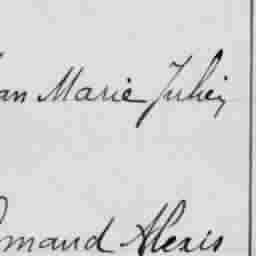 an Marie Julien
mand Alexis